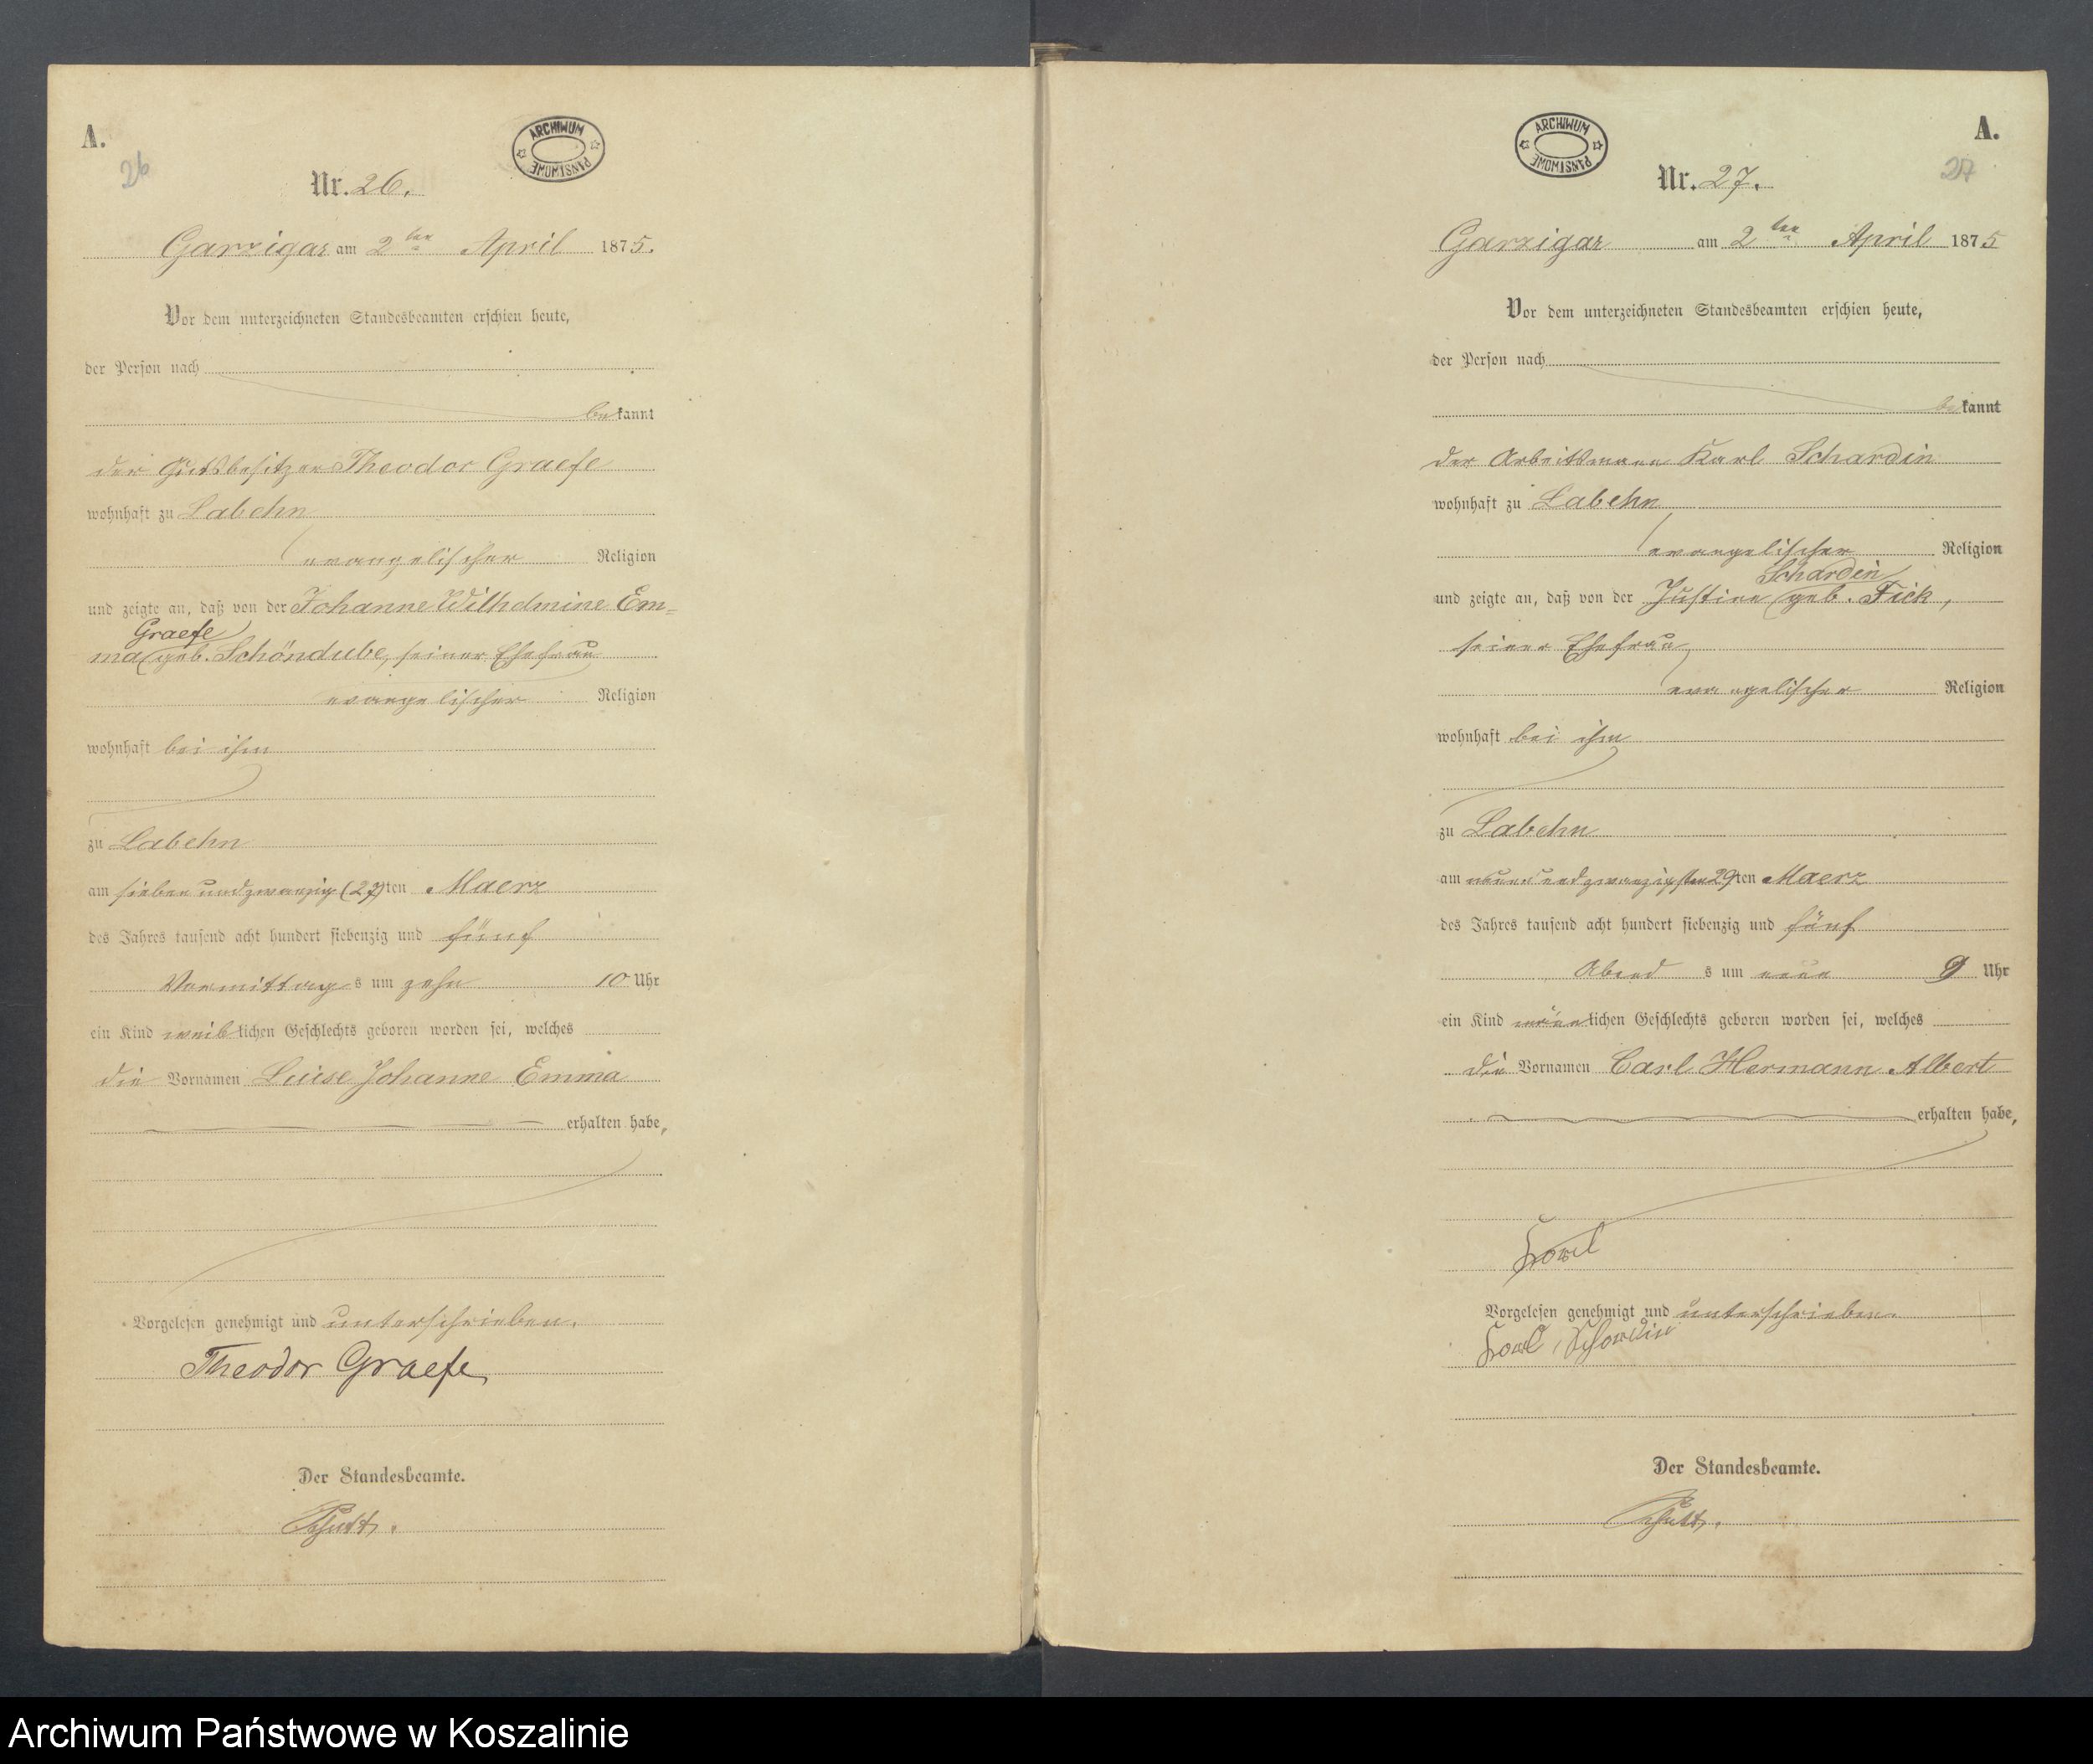 A.
26
ARCHIWUM PAŃSTWOWE
Nr. 26.
Garzigar am 2ten April 1875.
Vor dem unterzeichneten Standesbeamten erschien heute,
der Person nach
bekannt
der Gutsbesitzer Theodor Graefe
wohnhaft zu Labehn
evangelischer Religion
und zeigte an, daß von der Johanne Wilhelmine Em=
Graefe
ma geb. Schöndube, seiner Ehefrau
evangelischer Religion
wohnhaft bei ihm
zu Labehn
am sieben und zwanzig (27)ten Maerz
des Jahres tausend acht hundert siebenzig und fünf
Vormittags um zehn 10 Uhr
ein Kind weiblichen Geschlechts geboren worden sei, welches
die Vornamen Luise Johanne Emma
erhalten habe,
Vorgelesen genehmigt und unterschrieben.
Theodor Graefe
Der Standesbeamte.
A.
27
ARCHIWUM PAŃSTWOWE
Nr. 27.
Garzigar am 2ten April 1875
Vor dem unterzeichneten Standesbeamten erschien heute,
der Person nach
bekannt
der Arbeitsmann Karl Schardin
wohnhaft zu Labehn
evangelischer Religion
Schardin
und zeigte an, daß von der Justine geb. Fick,
seiner Ehefrau
evangelischer Religion
wohnhaft bei ihm
zu Labehn
am neun und zwanzigsten 29ten Maerz
des Jahres tausend acht hundert siebenzig und fünf
Abends um neun 9 Uhr
ein Kind männlichen Geschlechts geboren worden sei, welches
die Vornamen Carl Hermann Albert
erhalten habe,
Karl
Vorgelesen genehmigt und unterschrieben.
Karl Schardin
Der Standesbeamte.
Archiwum Państwowe w Koszalinie